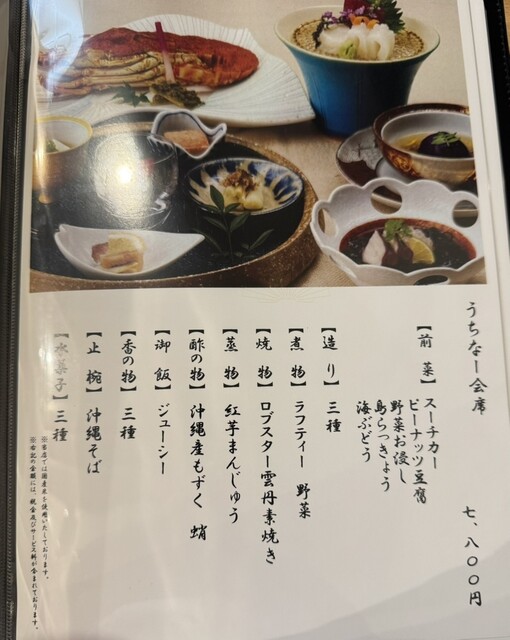 うちなー会席　七、八〇〇円
【前菜】スーチカー
ピーナッツ豆腐
野菜お浸し
島らっきょう
海ぶどう
【造り】三種
【煮物】ラフティー　野菜
【焼物】ロブスター雲丹素焼き
【蒸物】紅芋まんじゅう
【酢の物】沖縄産もずく　蛸
【御飯】ジューシー
【香の物】三種
【止椀】沖縄そば
【水菓子】三種
※当店では国産米を使用いたしております。
※右記の金額には、税金及びサービス料が含まれております。